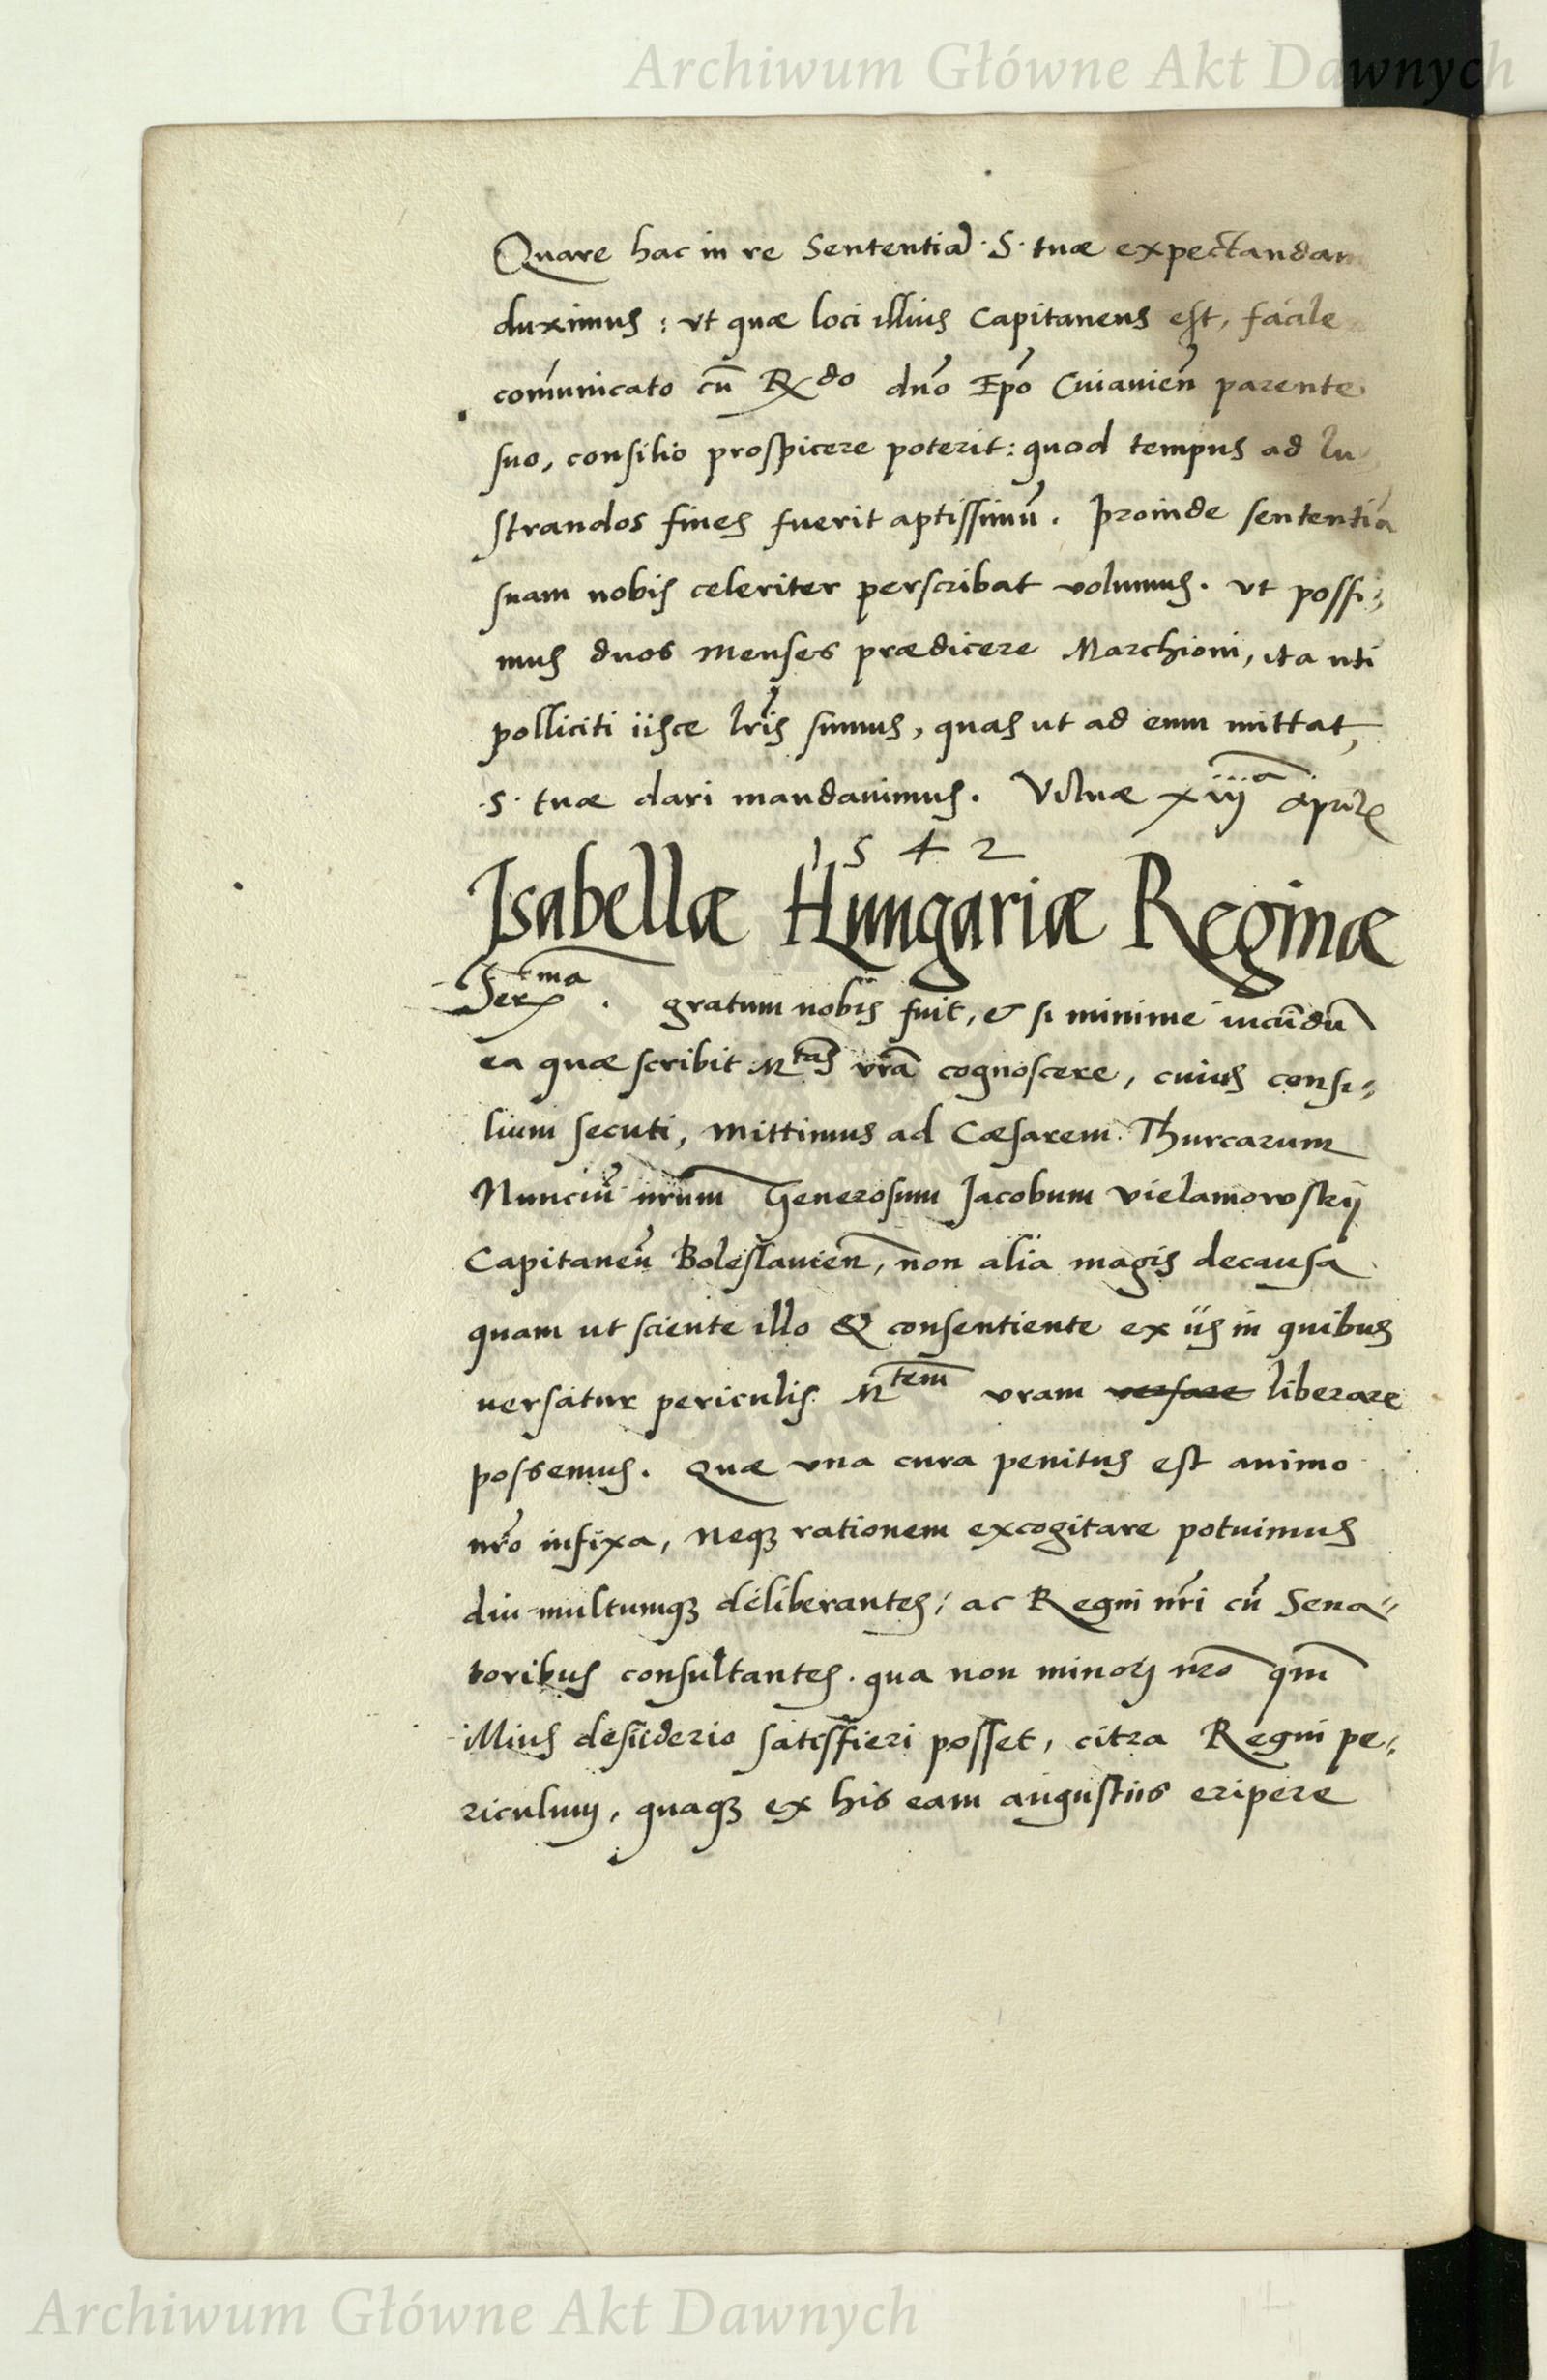 Archiwum Główne Akt Dawnych
Quare hac in re Sententiã ·S· tuæ expectandam
duximus : vt quæ loci illius Capitaneus est, facile
com̄unicato cũ Rdo dño Epõ Cuiavieñ parente
suo, consilio prospicere poterit: quod tempus ad lu
strandos fines fuerit aptissimũ. Proinde sententiã
suam nobis celeriter perscribat volumus. vt possi-
mus duos menses prædicere Marchioni, ita uti
polliciti iisce lr̃is sumus, quas ut ad eum mittat,
·S· tuæ dari mandavimus. Vilnæ xiijª Aprilis
1542
Isabellæ Hungariæ Reginæ
Serma . gratum nobis fuit, & si minime iucũdũ
ea quæ scribit Mtas vr̃a cognoscere, cuius consi-
lium secuti, mittimus ad Cæsarem Thurcarum
Nunciũ nr̃um Generosum Jacobum vielamowskij
Capitaneũ Boleslavieñ, non alia magis de causa
quam ut sciente illo & consentiente ex iis in quibus
versatur periculis Mtem vram versare liberare
possemus. Quæ una cura penitus est animo
nr̃o infixa, neqȝ rationem excogitare potuimus
diu multumqȝ deliberantes, ac Regni nr̃i cũ Sena-
toribus consultantes. qua non minori nr̃o qm̃
illius desiderio satisfieri posset, citra Regni pe-
riculum, quaqȝ ex his eam angustiis eripere
Archiwum Główne Akt Dawnych